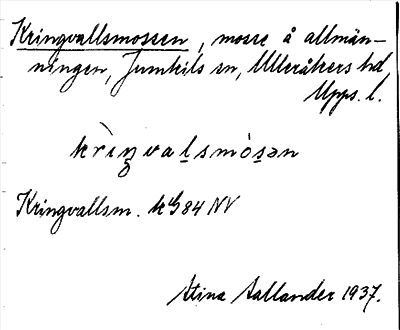 Kringvallsmossen, mosse å allmän-
ningen, Jumkils sn, Ulleråkers hd,
Upps. l.
krìŋvaḻsmòs̱ən
Kringvallsm. 84 NV
Stina Sallander 1937.